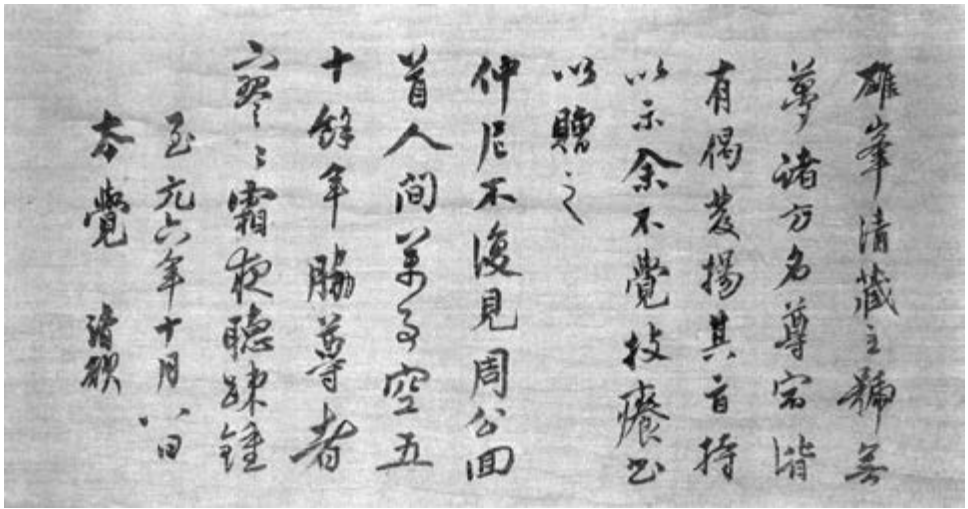 雄峯清藏主號無
夢諸方名尊宿皆
有偈發揚其旨持
以示余不覺技癢書
以贈之
仲尼不復見周公回
首人間萬事空五
十餘年脇尊者
寥〻霜夜聽踈鍾
至元六年十月八日
本覺 清欲